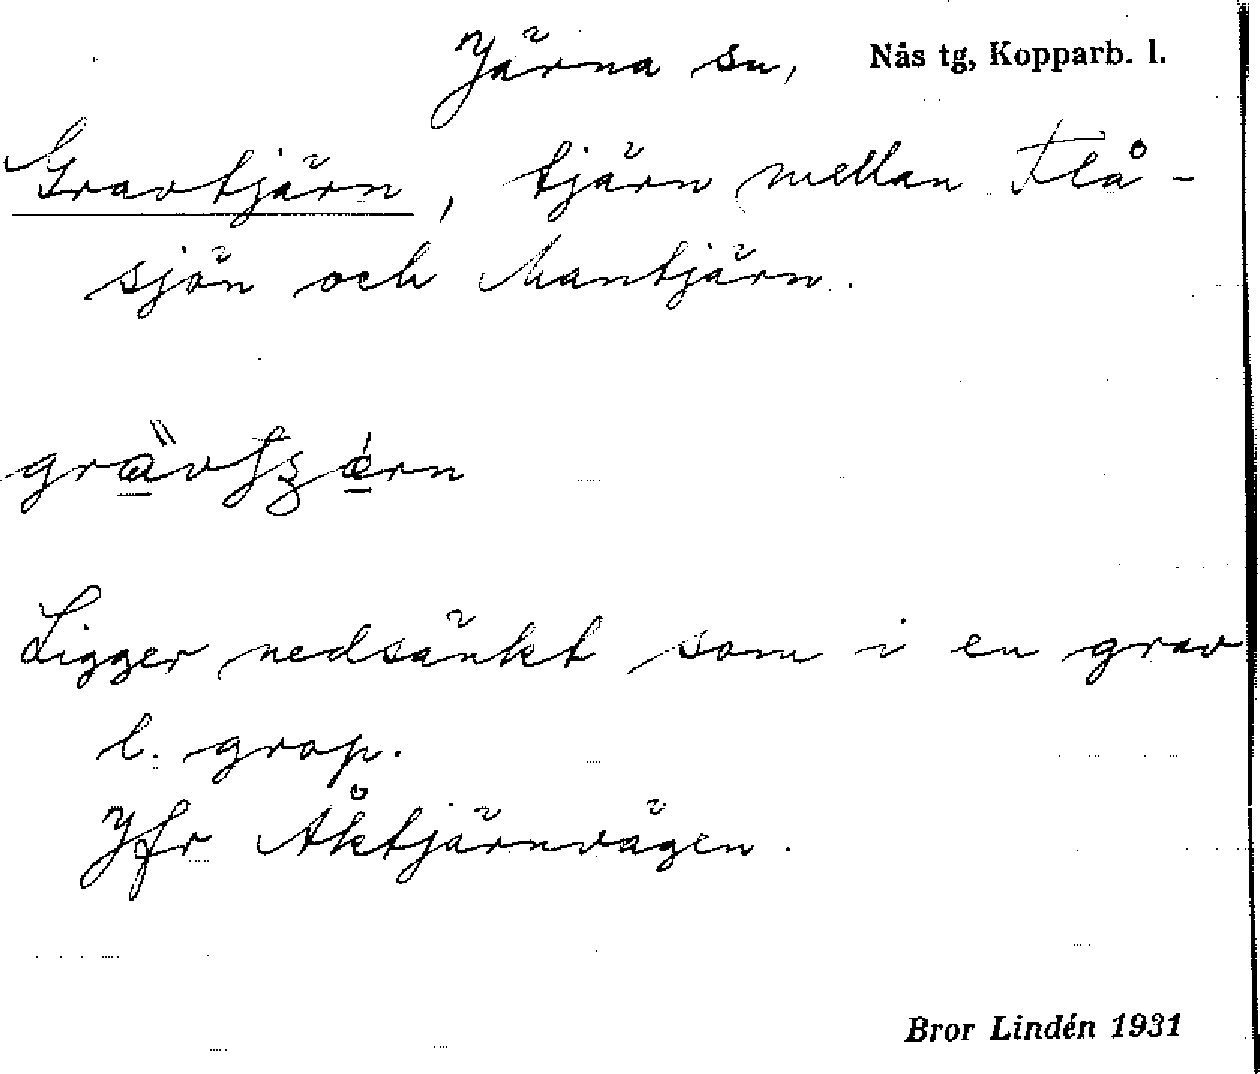 Järna sn, Nås tg, Kopparb. l.
Gravtjärn, tjärn mellan Flå-
sjön och Mantjärn.
Ligger nedsänkt som i en grav
l. grop.
Jfr Åktjärnvägen.
Bror Lindén 1931